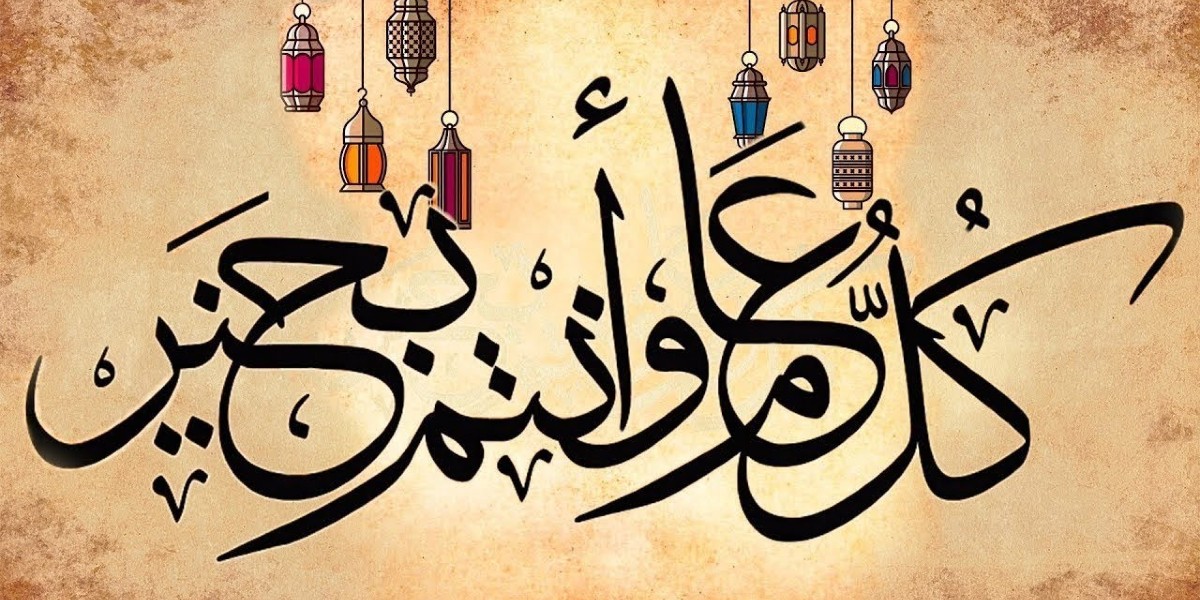 كُلُّ عَامٍ وأنتم بخَير